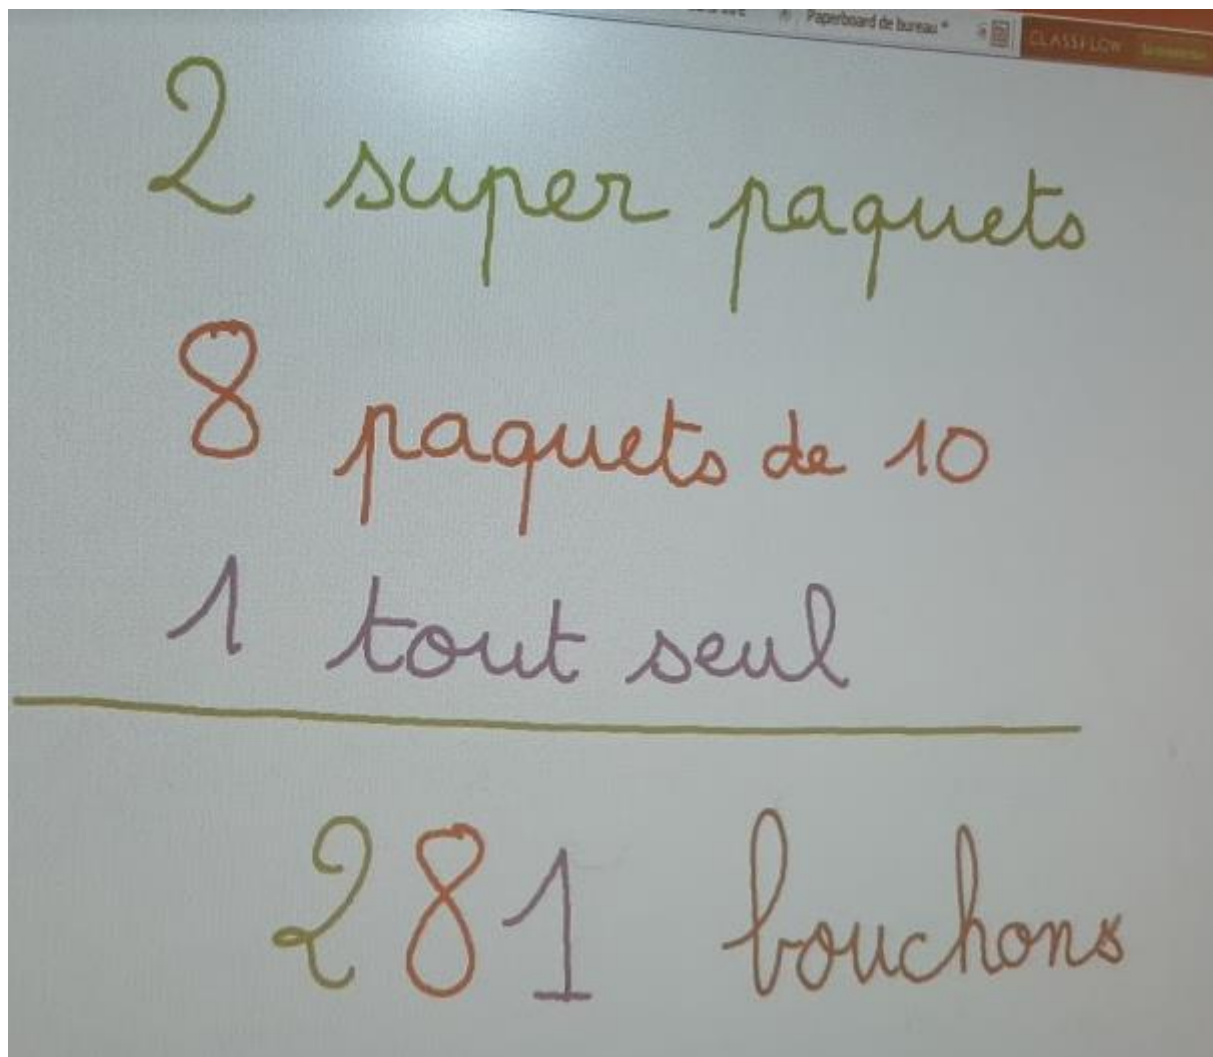 Paperboard de bureau *
CLASSFLOW
2 super paquets
8 paquets de 10
1 tout seul
281 bouchons